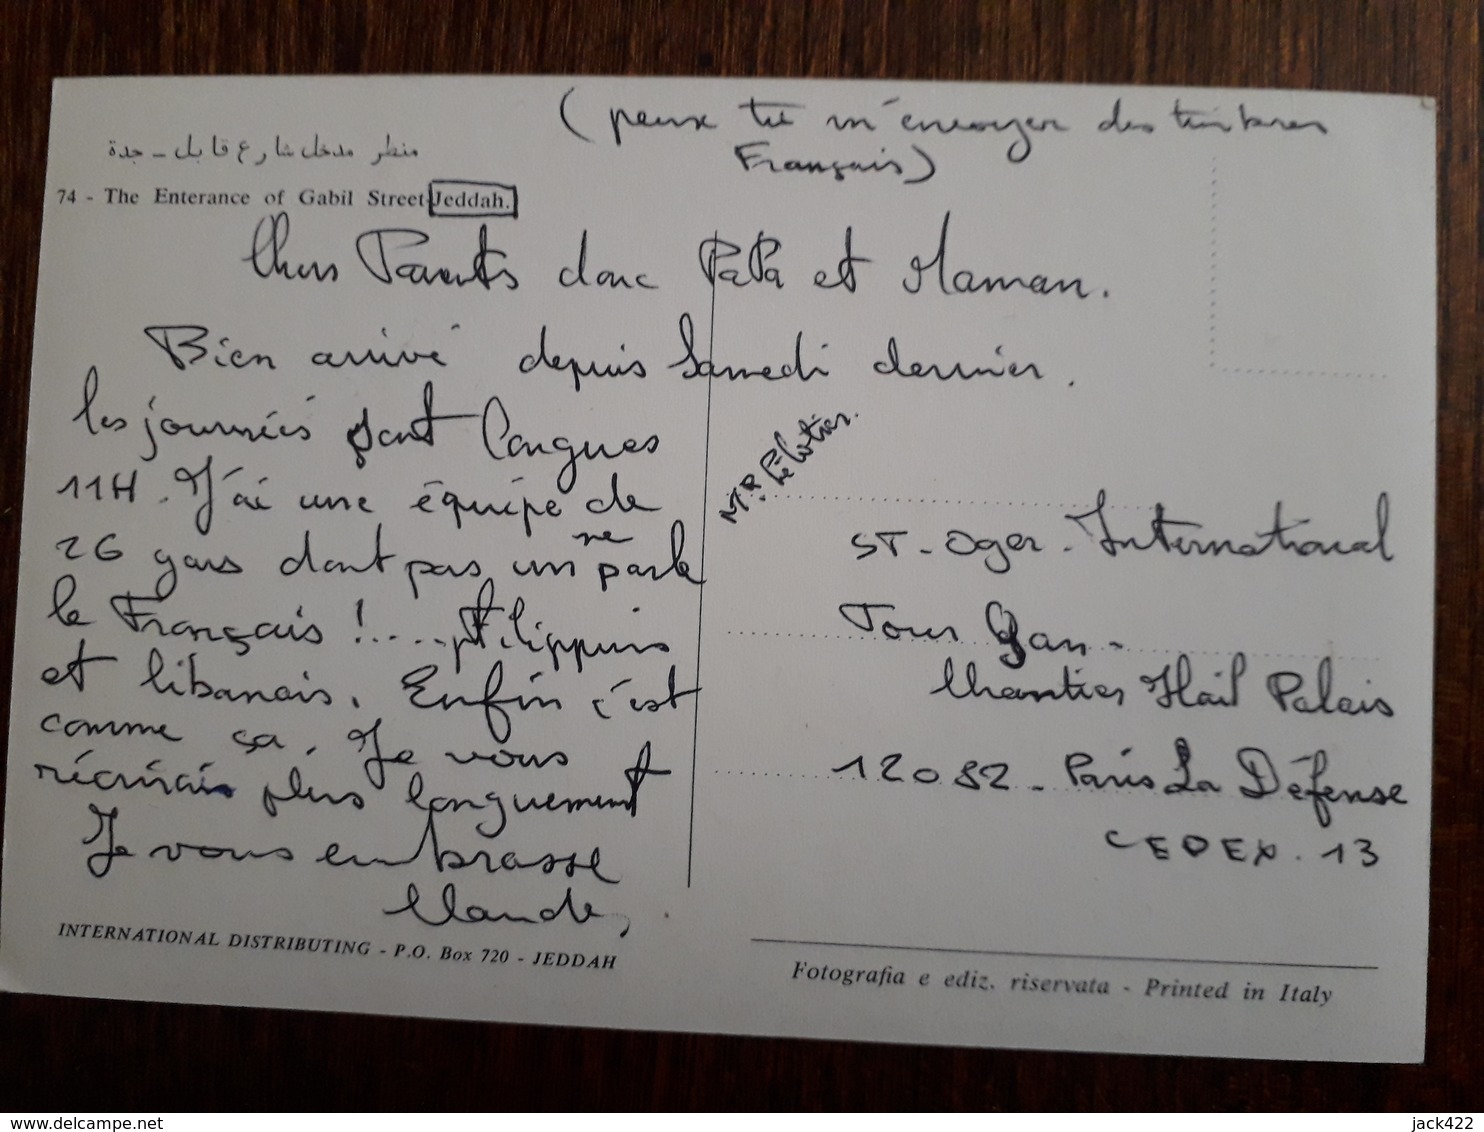 (peux tu m'envoyer des timbres
Français)
منظر مدخل شارع قابل - جدة
74 - The Enterance of Gabil Street Jeddah.
Chers Parents donc PaPa et Maman.
Bien arrivé depuis Samedi dernier.
les journées sont longues
11H. J'ai une équipe de
26 gars dont pas un ne parle
le Français !.... Filippins
et libanais. Enfin c'est
comme ça. Je vous
récrirais plus longuement
Je vous embrasse
Claude,
MR. Pelletier.
ST - Oger - International
Tour Gan -
Chantier Haïl Palais
12082 - Paris La Défense
CEDEX. 13
INTERNATIONAL DISTRIBUTING - P.O. Box 720 - JEDDAH
Fotografia e ediz. riservata - Printed in Italy
www.delcampe.net
jack422